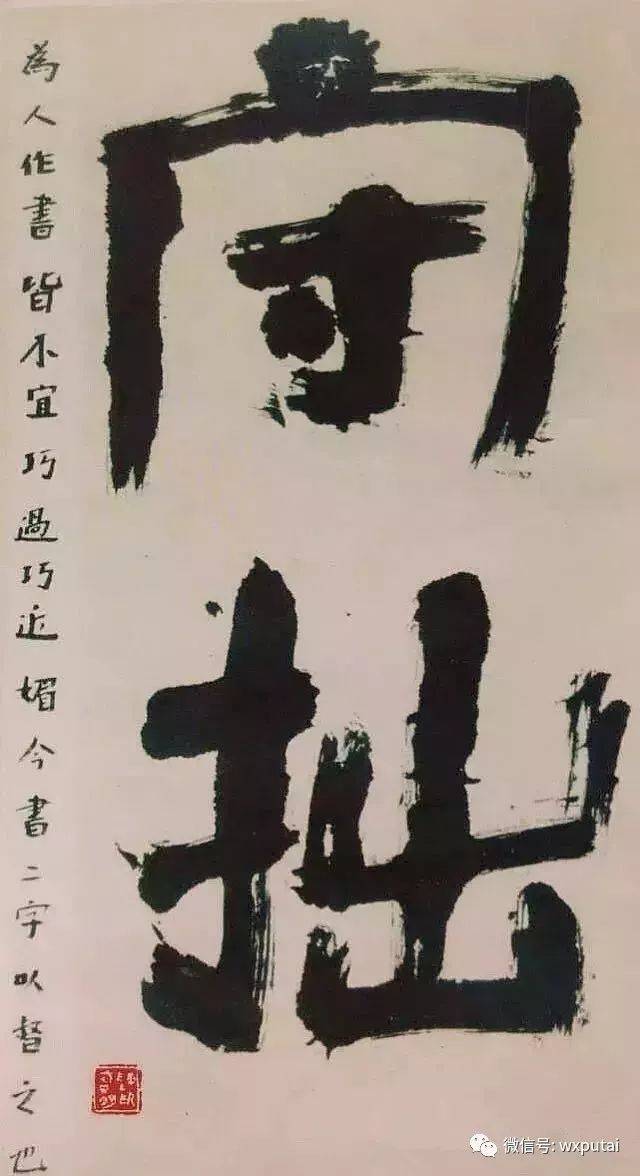 守拙
為人作書皆不宜巧過巧近媚今書二字以督之也
微信号: wxputai